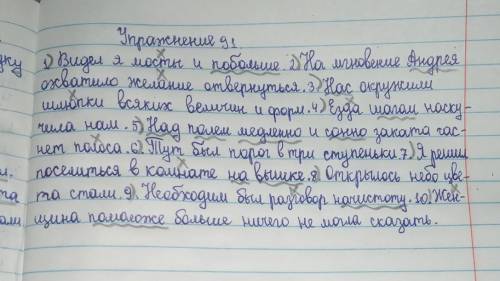 Упражнение 91
1) Видел я мосты и побольше. 2) На мгновение Андрея
охватило желание отвернуться. 3) Нас окружили
шляпки всяких величин и форм. 4) Езда шагом наску-
чила нам. 5) Над полем медленно и сонно заката гас-
нет полоса. 6) Тут был порог в три ступеньки. 7) Я решил
поселиться в комнате на вышке. 8) Открылось небо цве-
та стали. 9) Необходим был разговор начистоту. 10) Жен-
щина помоложе больше ничего не могла сказать.
дку
м.
та